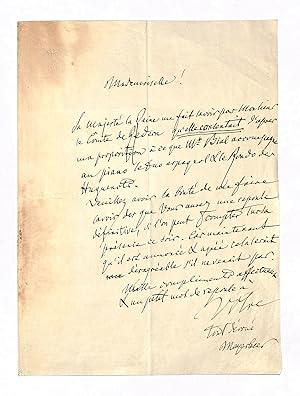 Mademoiselle!
Sa Majesté la Reine me fait savoir par Monsieur
le Comte de Redern qu'elle consentait d'après
ma proposition à ce que Mr. Bial accompagne
au piano le Duo espagnol & le Rondo des
Huguenots.
Veuillez avoir la bonté de me faire
savoir dès que Vous aurez une réponse
définitive, si l'on peut compter sur la
présence ce soir. Car maintenant
qu'il est annoncé & agréé cela serait
désagréable s'il ne venait pas.
Mille compliments affectueux
& un petit mot de réponse à
Votre
tout dévoué
Meyerbeer